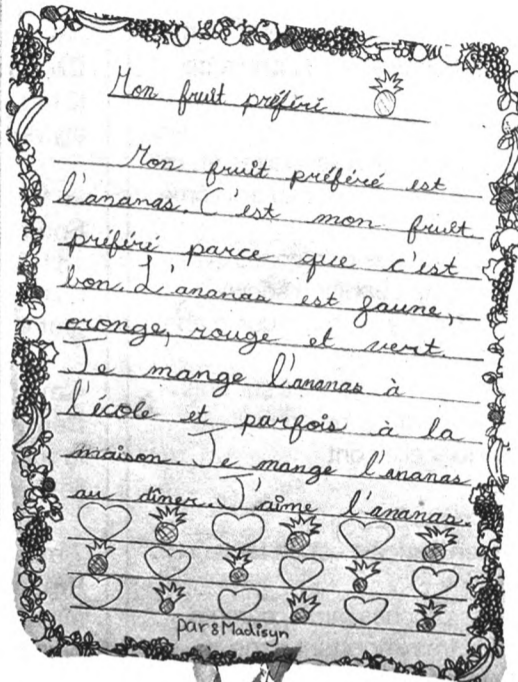 Mon fruit préféré
Mon fruit préféré est
l'ananas. C'est mon fruit
préféré parce que c'est
bon. L'ananas est jaune,
oronge, rouge et vert.
Je mange l'ananas à
l'école et parfois à la
maison. Je mange l'ananas
au dîner. J'aime l'ananas.
par: Madisyn